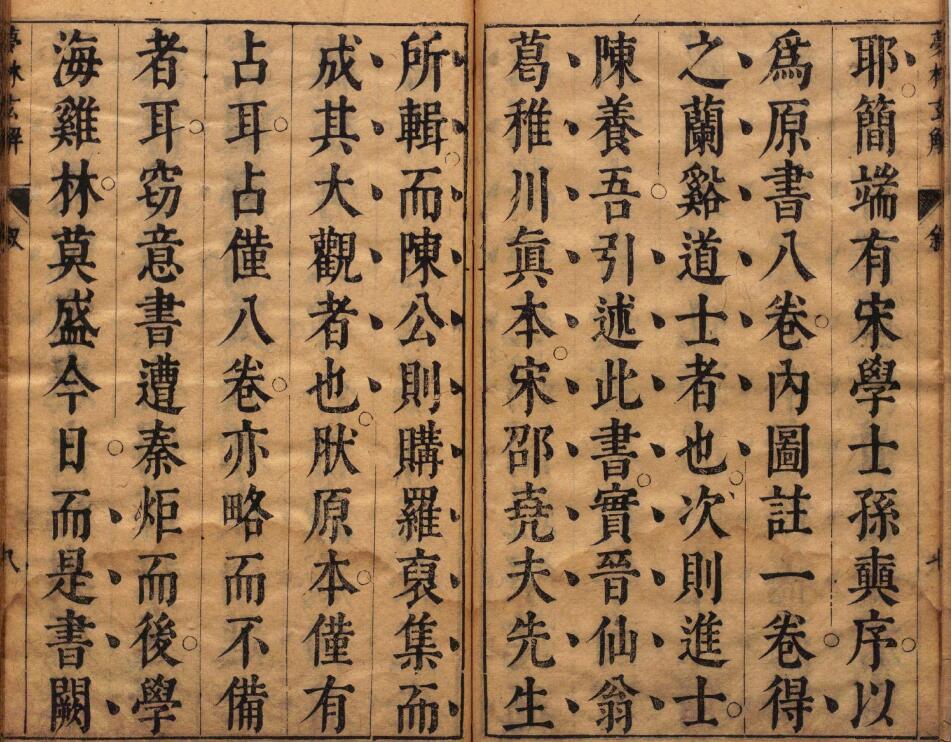 耶簡端有宋學士孫奭序以
爲原書八卷內圖註一卷得
之蘭谿道士者也次則進士
陳養吾引述此書實晉仙翁
葛稚川眞本宋邵堯夫先生
所輯而陳公則購羅裒集而
成其大觀者也肰原本僅有
占耳占僅八卷亦略而不備
者耳窃意書遭秦炬而後學
海雞林莫盛今日而是書闕